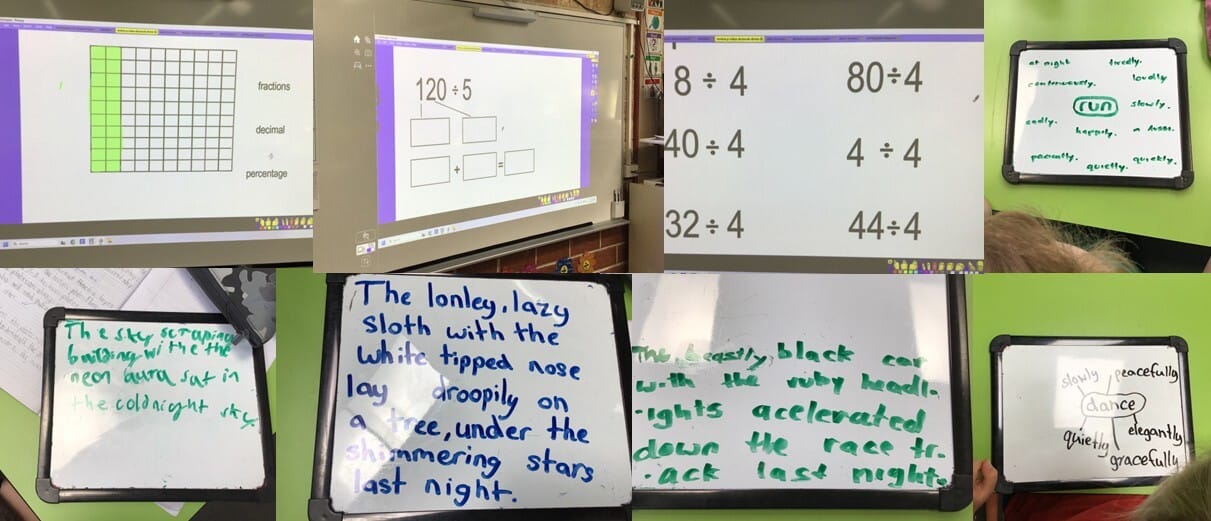 fractions
decimal
percentage
120 ÷ 5
+ =
8 ÷ 4
80÷4
40 ÷ 4
4 ÷ 4
32 ÷ 4
44÷4
at night
loudly
run
slowly.
happily.
quietly.
quickly.
The sky scraping
building withe the
neon aura sat in
the cold night sky
The lonley, lazy
sloth with the
white tipped nose
lay droopily on
a tree, under the
shimmering stars
last night.
The, beastly, black car
with the ruby headl-
-ights acelerated
down the race tr-
-ack last night.
slowly
peacefully
dance
quietly
elegantly
gracefully